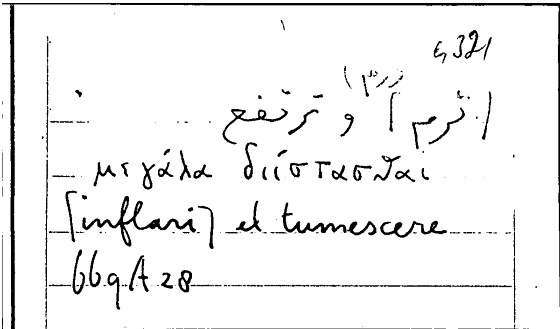 321
[ترم] و ترتفع
μεγάλα διίστασθαι
[inflari] et tumescere
669 A 28